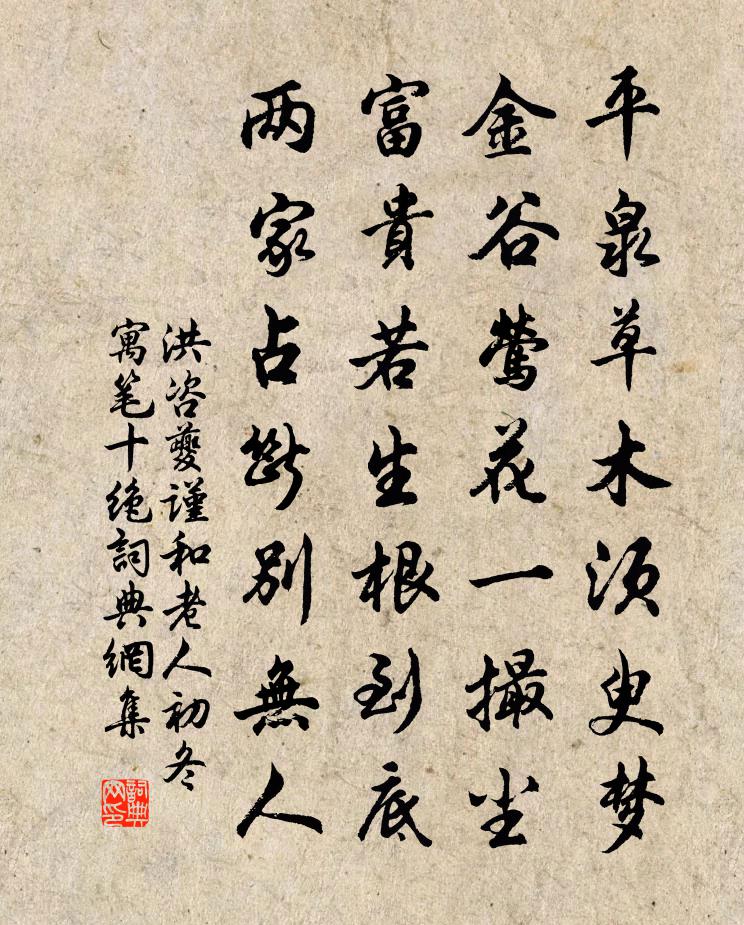 平泉草木须臾梦
金谷莺花一撮尘
富貴若生根到底
两家占断别無人
洪咨夔謹和老人初冬
寓笔十绝詞典網集
詞典网印